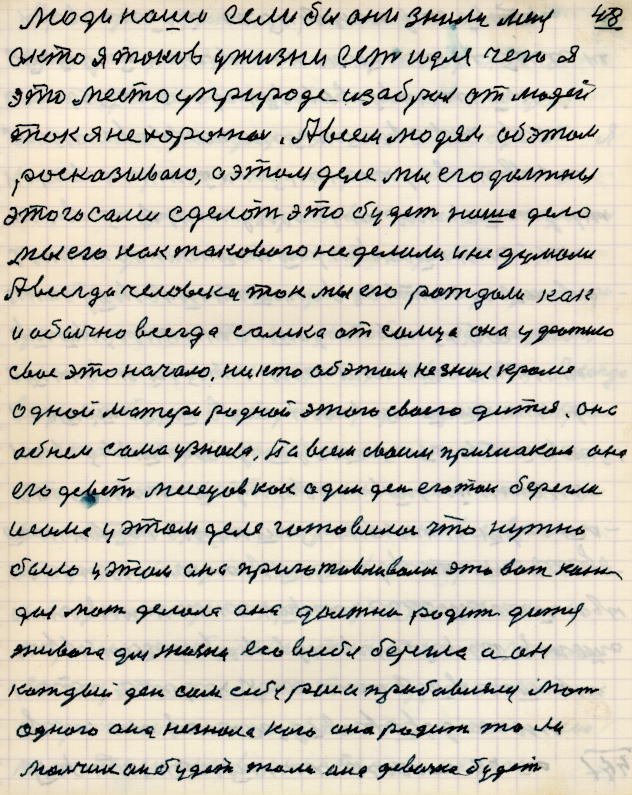 48
Люди наши Если бы они знали мен
а кто я токов у жизни Ест и для чего я
это место у природе изабрал от людей
ток я не хороток. А всем людям об этом
росказываю, о этом деле мы его должны
этого сами сделот это будет наше дело
мы его как такового не делали и не думали
А всегда человека ток мы его рождали как
и обычно всегда самка от самца она у
свое это начало, никто об этом не знал кроме
одной матери родной этого своего дитя. она
об нем сама узнала, Па всем своим признакам она
его девет месецов как один ден его так берегла
и сама у этом деле готовилас что нужно
было у этом она приготавливала это вот
мат делала она должна родит дитя
живога для жизни его в себе берегла а он
каждый ден сам себе прибавлял Мат
одного она незнала кого она родит то ли
малчик он будет то ли она девачка будет